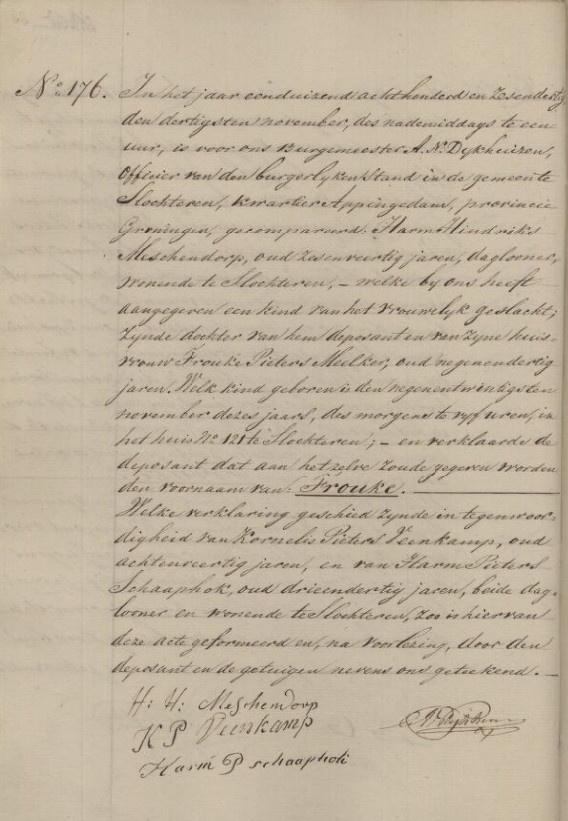 No. 176. In het jaar eenduizend achthonderd en zesendertig
den dertigsten november, des nademiddags te een
uur, is voor ons Burgemeester A. N. Dijkhuizen,
officier van den burgerlyken stand in de gemeente
Slochteren, kwartier Appingedam, provincie
Groningen, gecompareerd Harm Hindriks
Meschendorp, oud zesenveertig jaren, daglooner,
wonende te Slochteren, – welke by ons heeft
aangegeven een kind van het vrouwelyk geslacht;
zynde dochter van hem deposant en van zyne huis-
vrouw Frouke Pieters Meelker, oud negenendertig
jaren. Welk kind geboren is den negenentwintigsten
november dezes jaars, des morgens te vyf uren, in
het huis No 121 te Slochteren; – en verklaarde de
deposant dat aan hetzelve zoude gegeven worden
den voornaam van Frouke.
Welke verklaring geschied zynde in tegenwoor-
digheid van Kornelis Pieters Veenkamp, oud
achtenveertig jaren, en van Harm Pieters
Schaaphok, oud drieendertig jaren, beide dag-
looner en wonende te Slochteren, zoo is hiervan
deze acte geformeerd en, na voorlezing, door den
deposant en de getuigen nevens ons geteekend. –
H: H: Meschendorp
K P Veenkamp
Harm P schaaphok